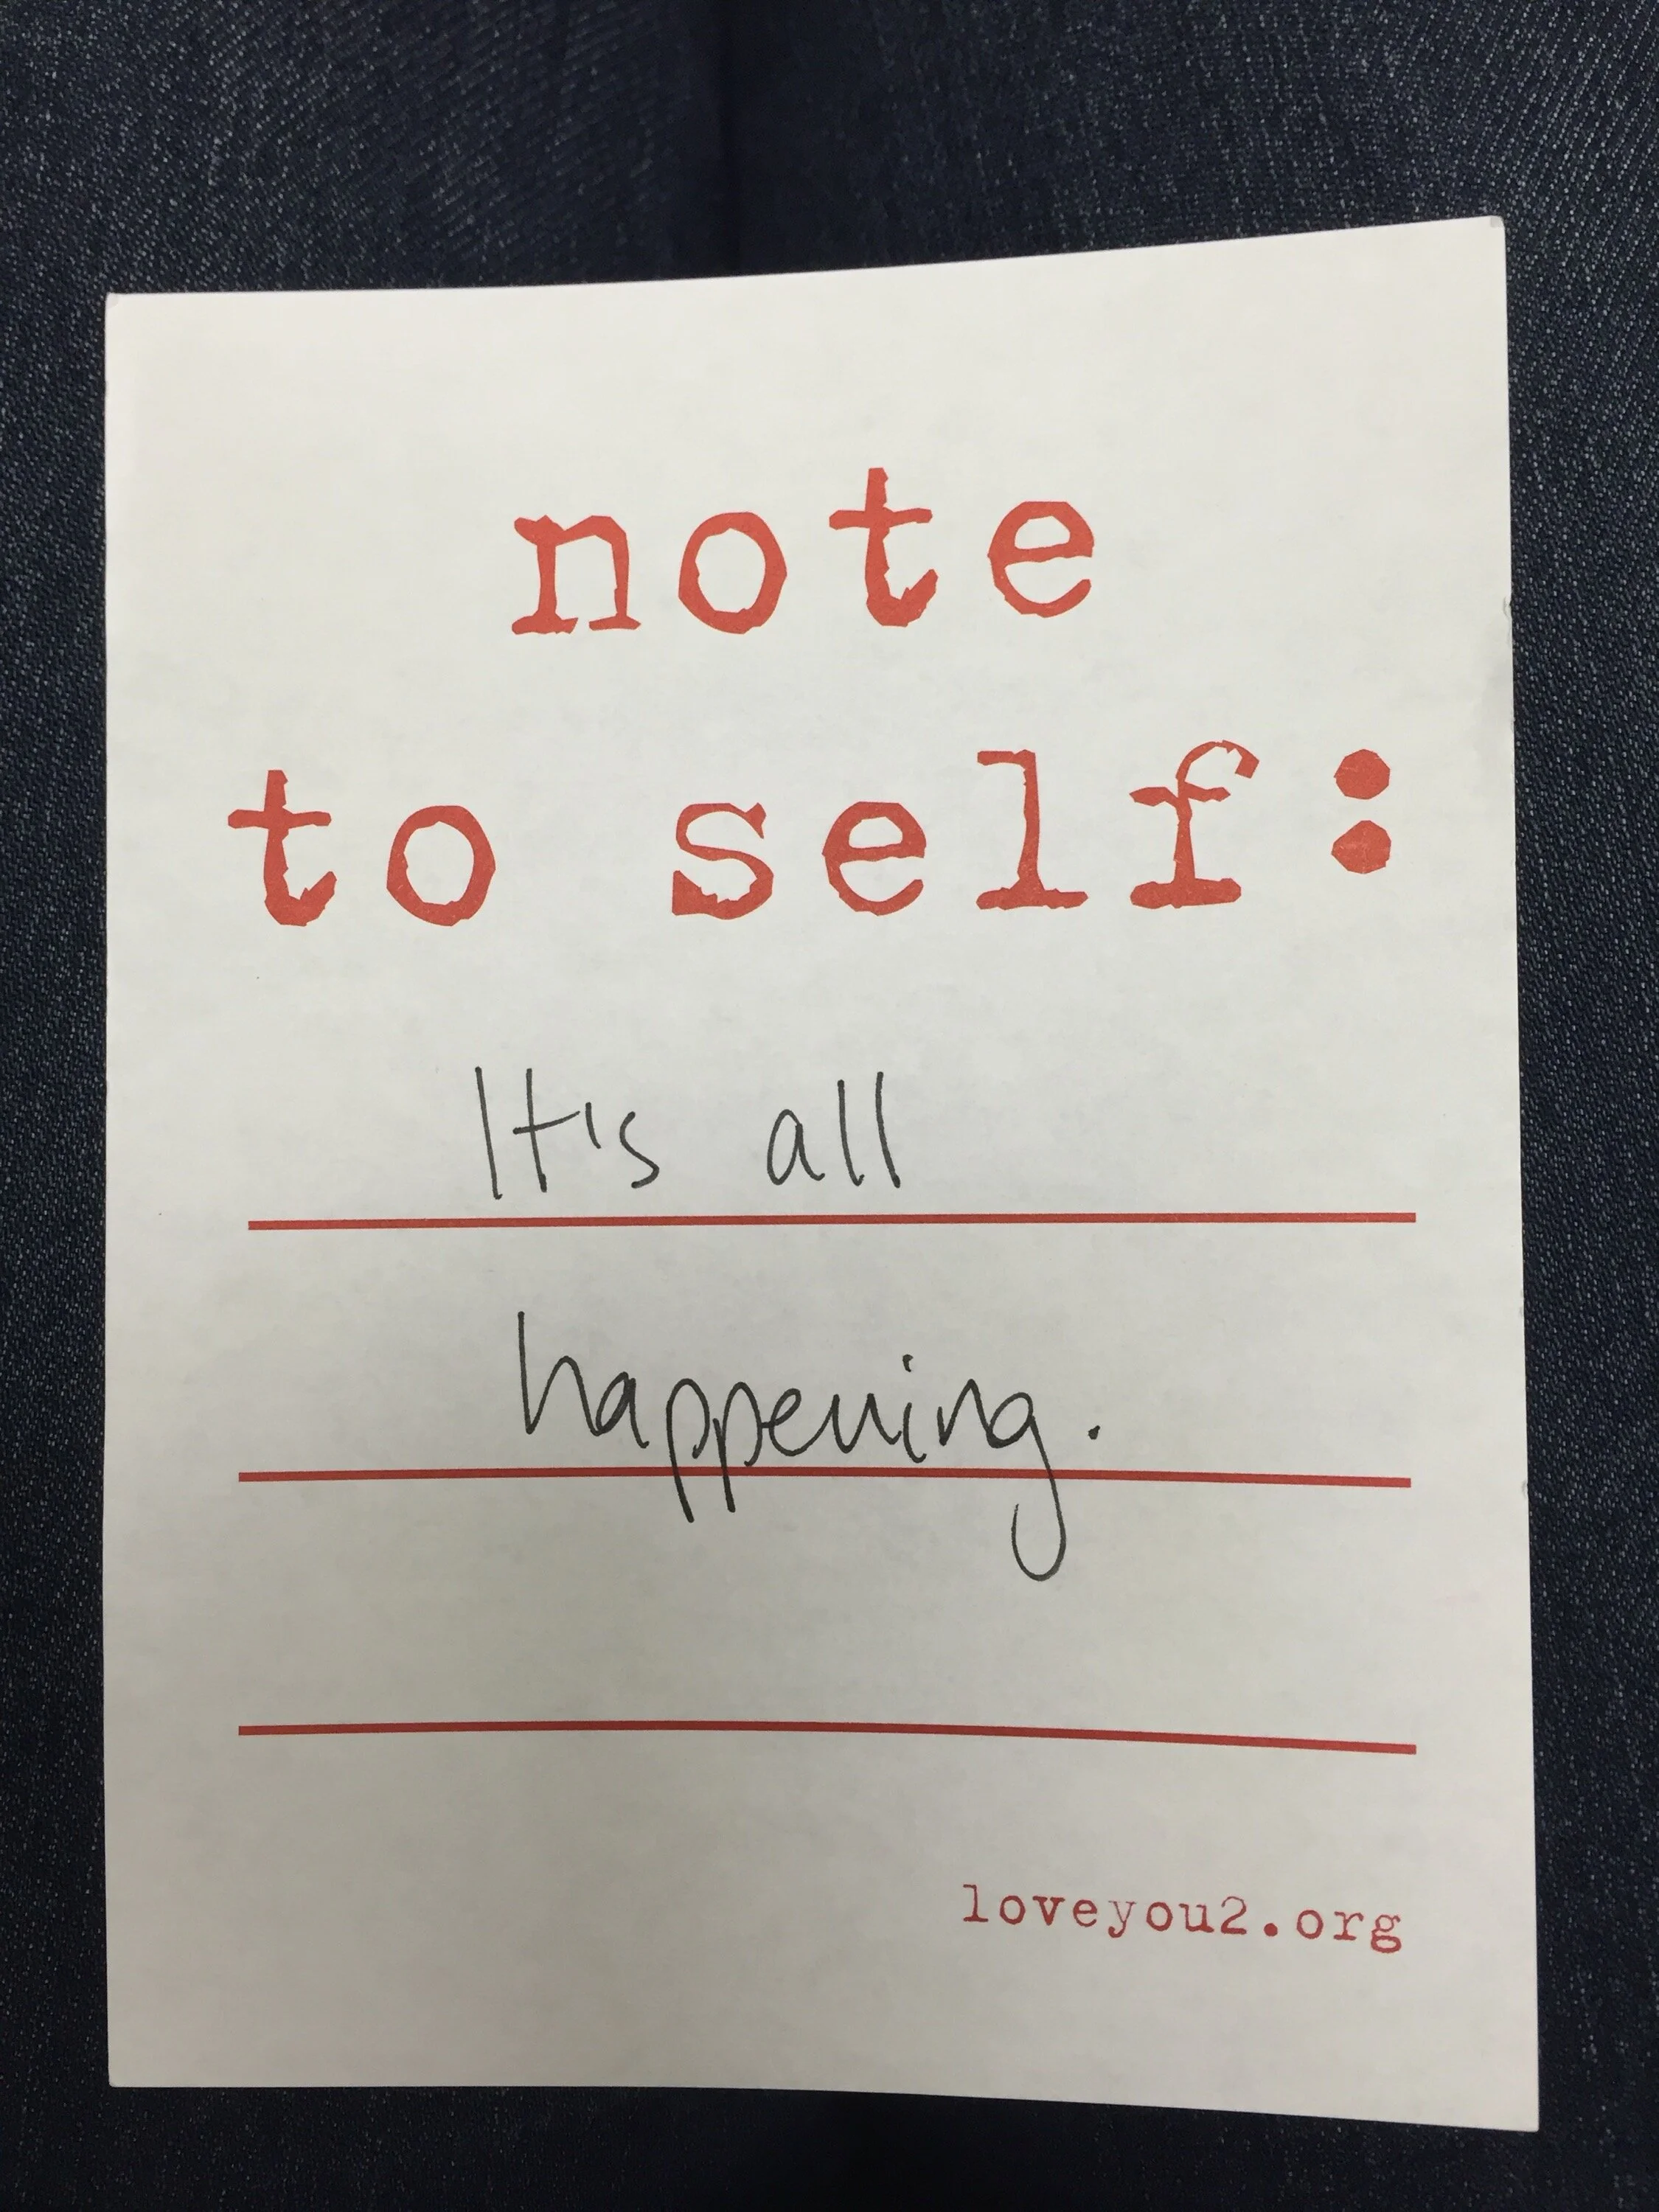 note
to self:
It's all
happening.
loveyou2.org